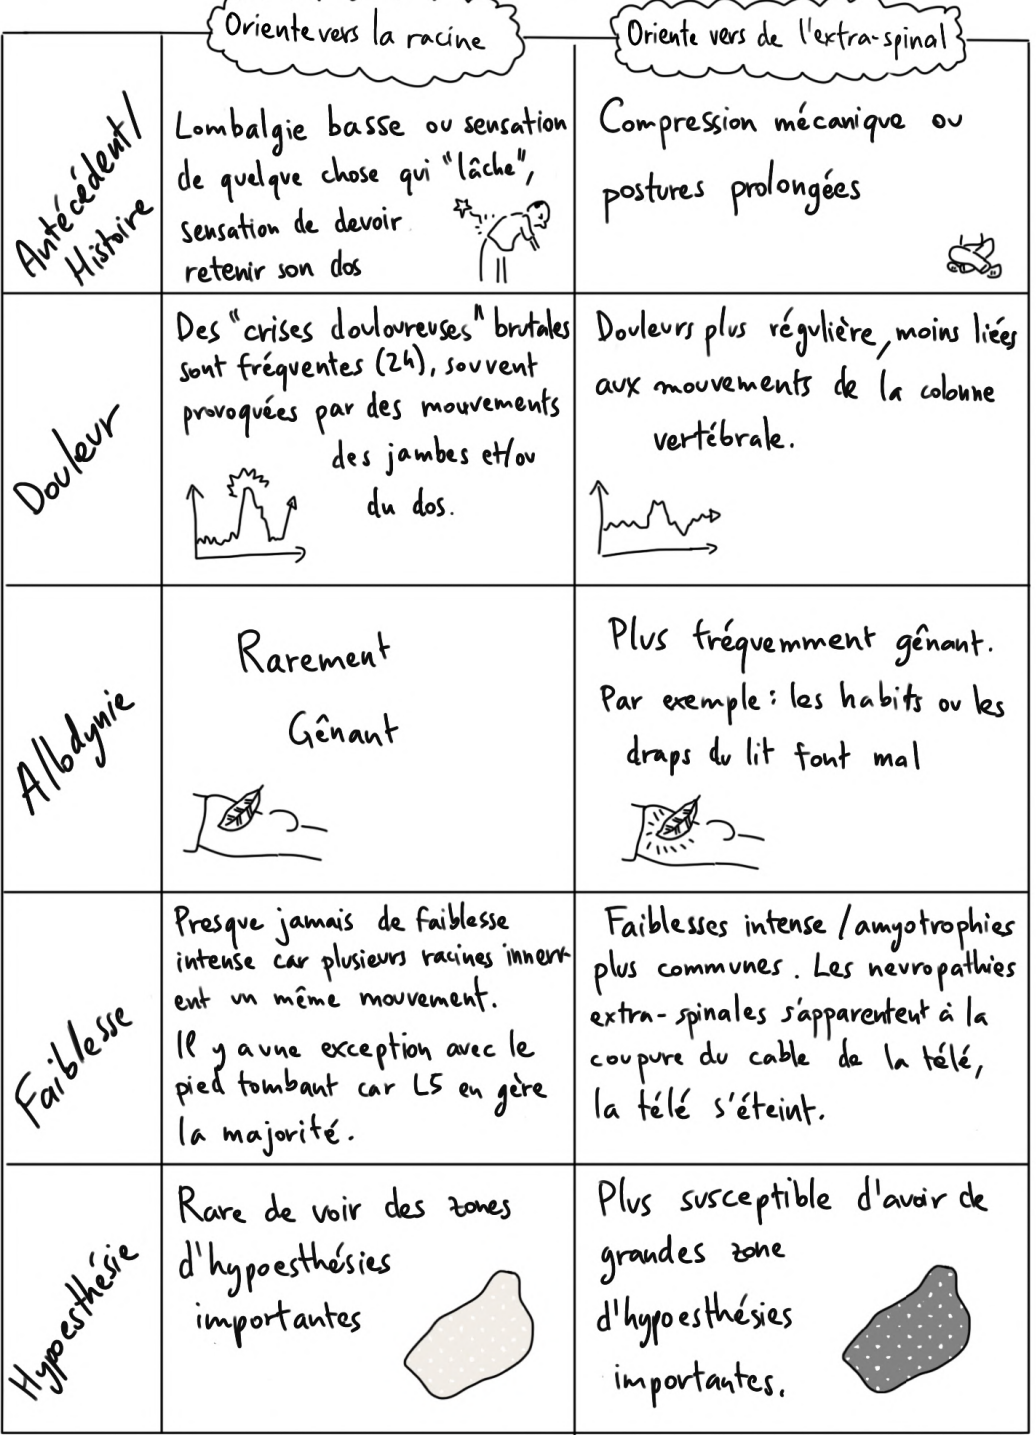 Oriente vers la racine
Oriente vers de l'extra-spinal
Antécédent/
Histoire
Lombalgie basse ou sensation
de quelque chose qui "lâche",
sensation de devoir
retenir son dos
Compression mécanique ou
postures prolongées
Douleur
Des "crises douloureuses" brutales
sont fréquentes (24), souvent
provoquées par des mouvements
des jambes et/ou
du dos.
Douleurs plus régulière, moins liées
aux mouvements de la colonne
vertébrale.
Allodynie
Rarement
Gênant
Plus fréquemment gênant.
Par exemple : les habits ou les
draps du lit font mal
Faiblesse
Presque jamais de faiblesse
intense car plusieurs racines innerv-
ent un même mouvement.
Il y a une exception avec le
pied tombant car L5 en gère
la majorité.
Faiblesses intense / amyotrophies
plus communes. Les nevropathies
extra-spinales s'apparentent à la
coupure du cable de la télé,
la télé s'éteint.
Hypoesthésie
Rare de voir des zones
d'hypoesthésies
importantes
Plus susceptible d'avoir de
grandes zone
d'hypoesthésies
importantes.